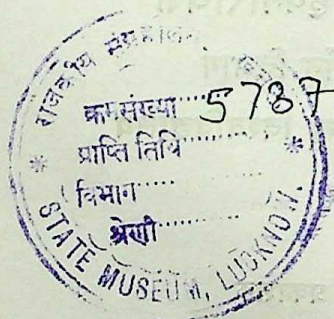 राजकीय संग्रहालय,
क्रम संख्या 5787
प्राप्ति तिथि
विभान
श्रेणी
STATE MUSEUM, LUCKNOW.